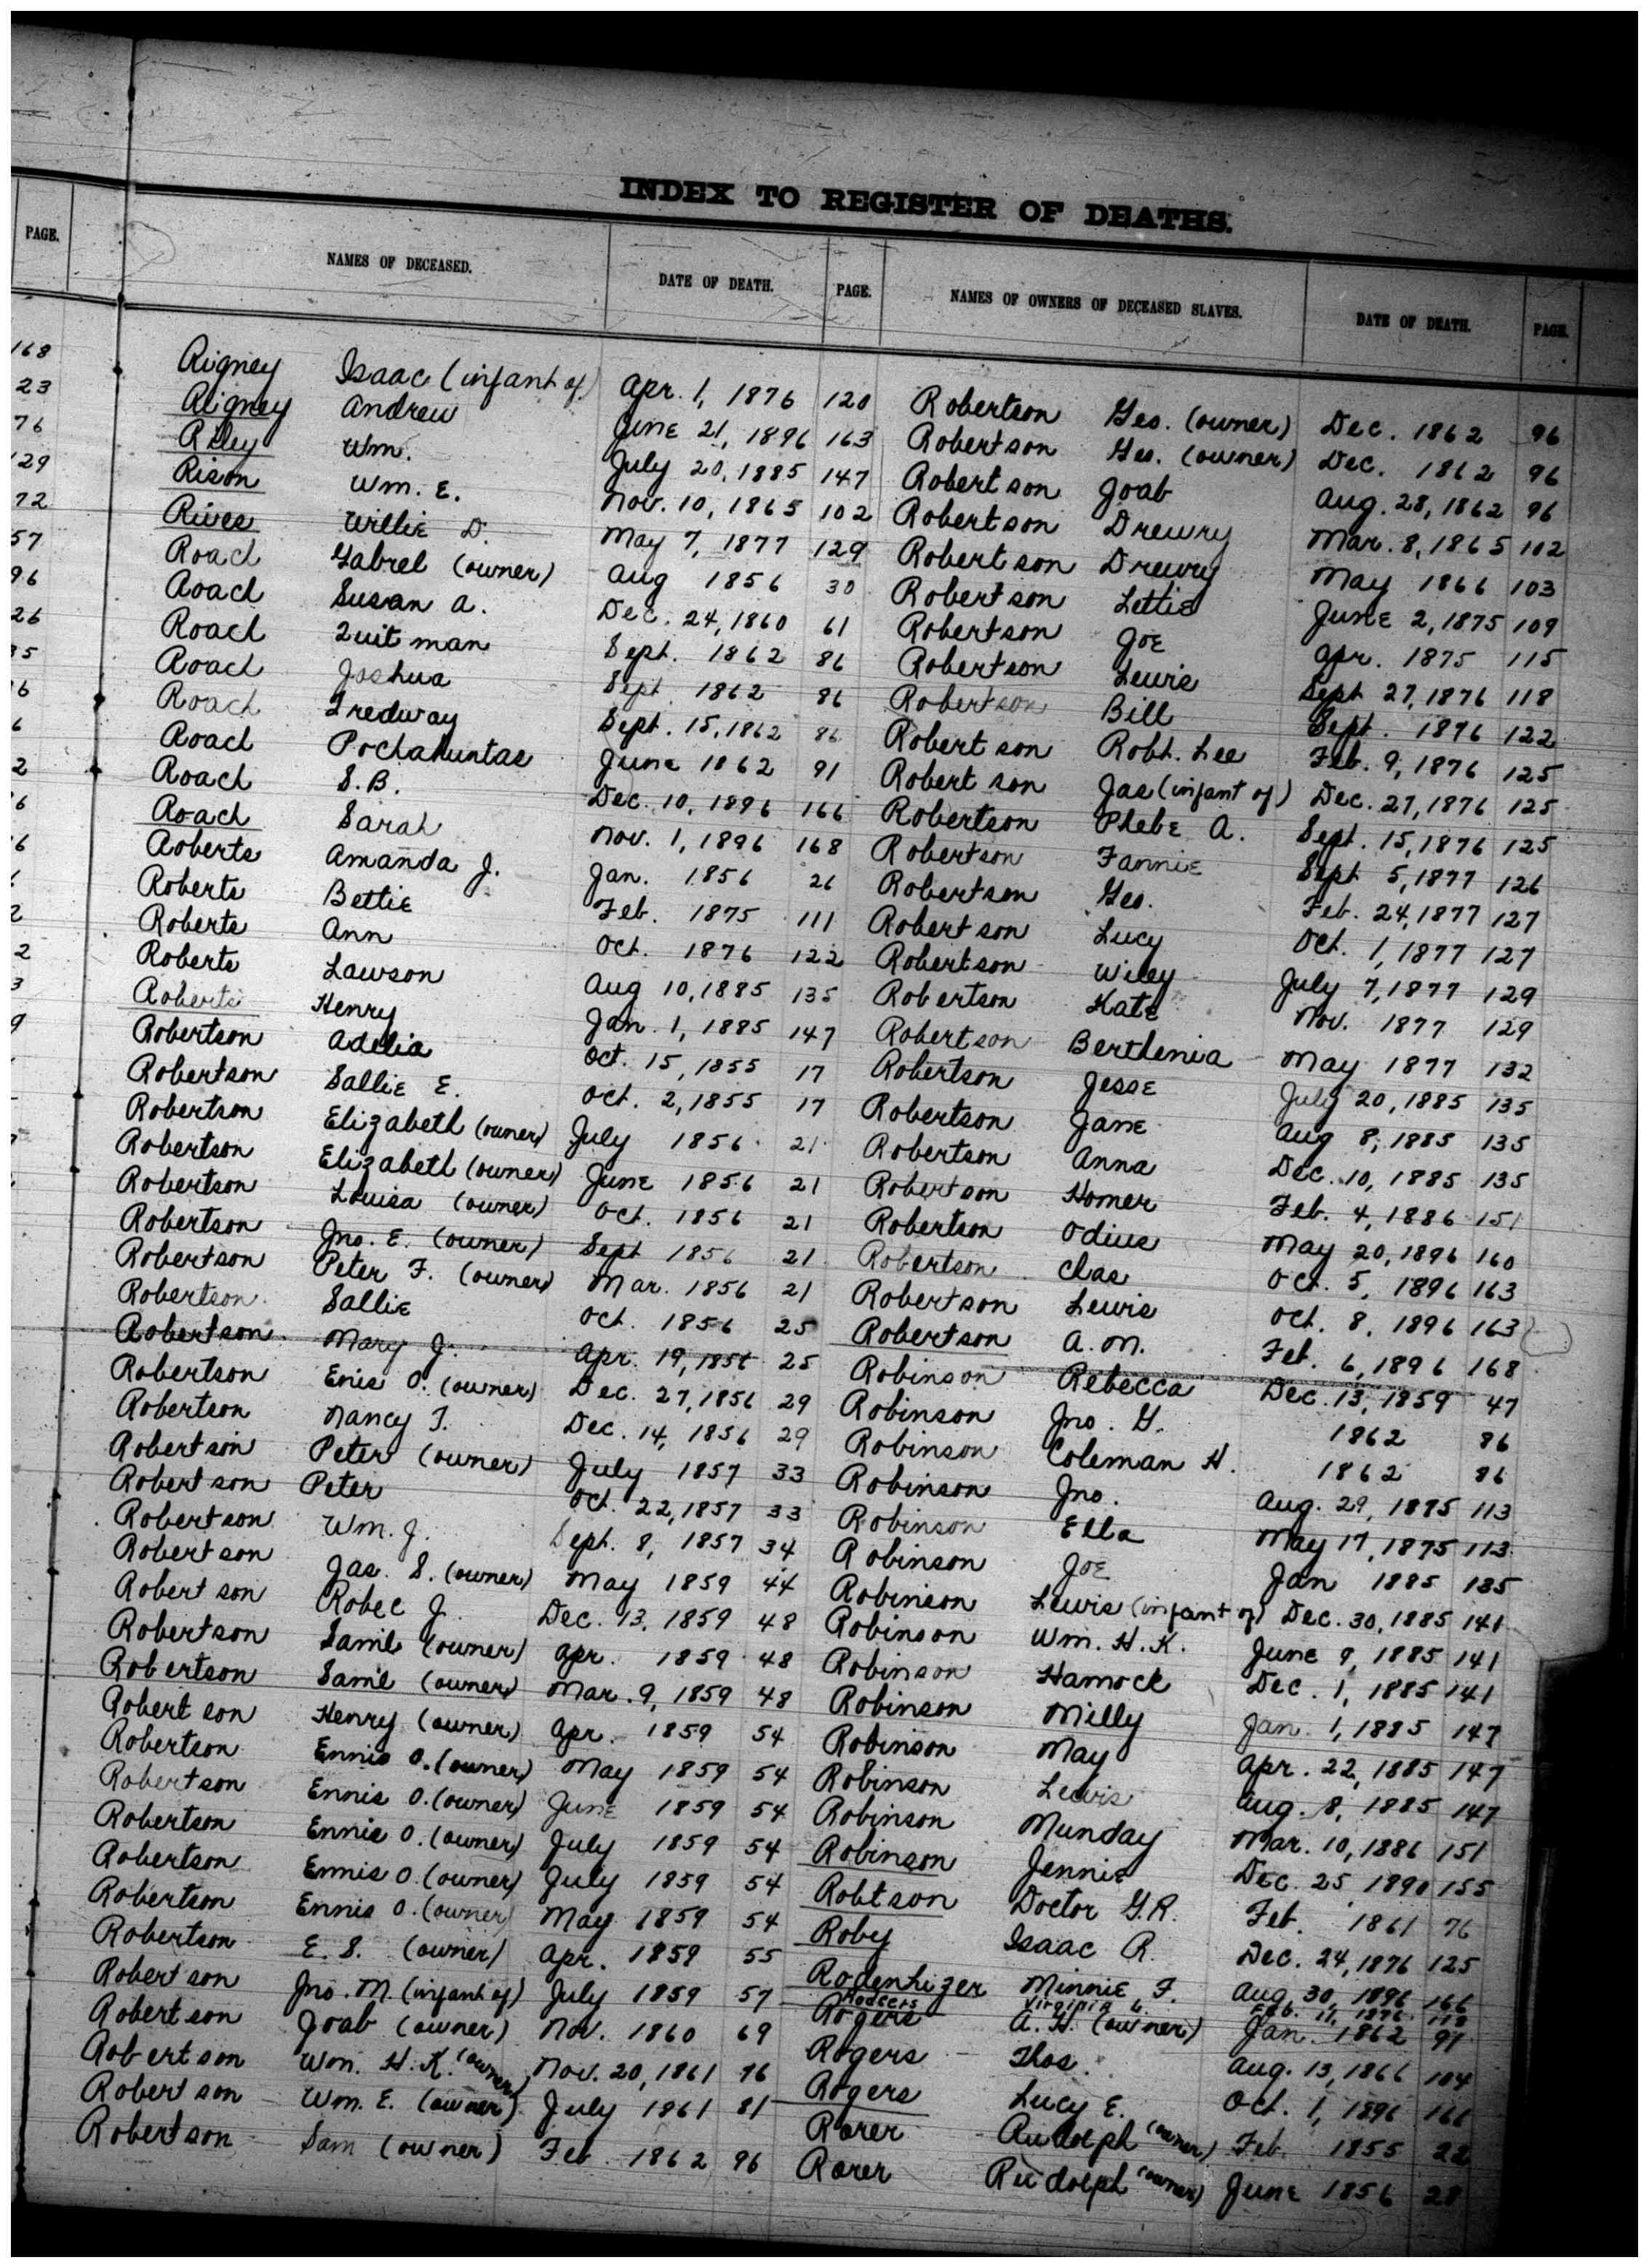 INDEX TO REGISTER OF DEATHS.
PAGE.
NAMES OF DECEASED. DATE OF DEATH. PAGE. NAMES OF OWNERS OF DECEASED SLAVES. DATE OF DEATH. PAGE.
168
23
76
129
72
57
96
26
Rigney Isaac (infant of) Apr. 1, 1876 120
Rigney Andrew June 21, 1896 163
Riley Wm. July 20, 1885 147
Rison Wm. E. Nov. 10, 1865 102
Rives Willie D. May 7, 1877 129
Roach Gabrel (owner) Aug 1856 30
Roach Susan A. Dec. 24, 1860 61
Roach Quitman Sept. 1862 86
Roach Joshua Sept 1862 86
Roach Tredway Sept. 15, 1862 86
Roach Pochahuntas June 1862 91
Roach S. B. Dec. 10, 1896 166
Roach Sarah Nov. 1, 1896 168
Roberts Amanda J. Jan. 1856 26
Roberts Bettie Feb. 1875 111
Roberts Ann Oct. 1876 122
Roberts Lawson Aug 10, 1885 135
Roberts Henry Jan. 1, 1885 147
Robertson Adelia Oct. 15, 1855 17
Robertson Sallie E. Oct. 2, 1855 17
Robertson Elizabeth (owner) July 1856 21
Robertson Elizabeth (owner) June 1856 21
Robertson Louisa (owner) Oct. 1856 21
Robertson Jno. E. (owner) Sept 1856 21
Robertson Peter F. (owner) Mar. 1856 21
Robertson Sallie Oct. 1856 25
Robertson Mary J. Apr. 19, 1856 25
Robertson Enis O. (owner) Dec. 27, 1856 29
Robertson Nancy T. Dec. 14, 1856 29
Robertson Peter (owner) July 1857 33
Robertson Peter Oct. 22, 1857 33
Robertson Wm. J. Sept. 8, 1857 34
Robertson Jas. S. (owner) May 1859 44
Robertson Robec J. Dec. 13, 1859 48
Robertson Saml (owner) Apr. 1859 48
Robertson Saml (owner) Mar. 9, 1859 48
Robertson Henry (owner) Apr. 1859 54
Robertson Ennis O. (owner) May 1859 54
Robertson Ennis O. (owner) June 1859 54
Robertson Ennis O. (owner) July 1859 54
Robertson Ennis O. (owner) July 1859 54
Robertson Ennis O. (owner) May 1859 54
Robertson E. S. (owner) Apr. 1859 55
Robertson Jno. M. (infant of) July 1859 57
Robertson Joab (owner) Nov. 1860 69
Robertson Wm. H. K. (owner) Nov. 20, 1861 76
Robertson Wm. E. (owner) July 1861 81
Robertson Sam (owner) Feb 1862 96
Robertson Geo. (owner) Dec. 1862 96
Robertson Geo. (owner) Dec. 1862 96
Robertson Joab Aug. 28, 1862 96
Robertson Drewry Mar. 8, 1865 102
Robertson Drewry May 1866 103
Robertson Lettie June 2, 1875 109
Robertson Joe Apr. 1875 115
Robertson Lewis Sept 27, 1876 118
Robertson Bill Sept. 1876 122
Robertson Robt. Lee Feb. 9, 1876 125
Robertson Jas (infant of) Dec. 27, 1876 125
Robertson Phebe A. Sept. 15, 1876 125
Robertson Fannie Sept 5, 1877 126
Robertson Geo. Feb. 24, 1877 127
Robertson Lucy Oct. 1, 1877 127
Robertson Wiley July 7, 1877 129
Robertson Kate Nov. 1877 129
Robertson Berthenia May 1877 132
Robertson Jesse July 20, 1885 135
Robertson Jane Aug 8, 1885 135
Robertson Anna Dec. 10, 1885 135
Robertson Homer Feb. 4, 1886 151
Robertson Odius May 20, 1896 160
Robertson Chas Oct. 5, 1896 163
Robertson Lewis Oct. 8, 1896 163
Robertson A. M. Feb. 6, 1896 168
Robinson Rebecca Dec. 13, 1859 47
Robinson Jno. G. 1862 86
Robinson Coleman H. 1862 86
Robinson Jno. Aug. 29, 1875 113
Robinson Ella May 17, 1875 113
Robinson Joe Jan 1885 135
Robinson Lewis (infant of) Dec. 30, 1885 141
Robinson Wm. H. K. June 9, 1885 141
Robinson Hamock Dec. 1, 1885 141
Robinson Milly Jan. 1, 1885 147
Robinson May Apr. 22, 1885 147
Robinson Lewis Aug. 8, 1885 147
Robinson Munday Mar. 10, 1886 151
Robinson Jennie Dec. 25 1890 155
Robtson Doctor G. R. Feb. 1861 76
Roby Isaac R. Dec. 24, 1876 125
Rodenhizer Minnie F. Aug 30, 1896 166
Rodgers Virginia Feb. 11, 1896
Rogers A. H. (owner) Jan. 1862 91
Rogers Thos. Aug. 13, 1866 104
Rogers Lucy E. Oct. 1, 1896 166
Rorer Rudolph (owner) Feb. 1855 22
Rorer Rudolph (owner) June 1856 28